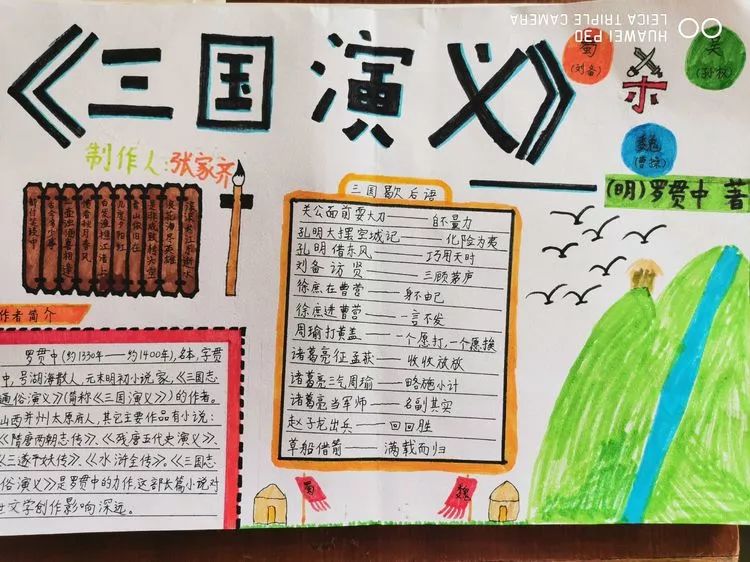 HUAWEI P30
LEICA TRIPLE CAMERA
《三国演义》
蜀
(刘备)
吴
(孙权)
魏
(曹操)
制作人:张家齐
(明)罗贯中 著
滚滚长江东逝水
浪花淘尽英雄
是非成败转头空
青山依旧在
几度夕阳红
白发渔樵江渚上
惯看秋月春风
一壶浊酒喜相逢
古今多少事
都付笑谈中
三国歇后语
关公面前耍大刀——自不量力
孔明大摆空城记——化险为夷
孔明借东风——巧用天时
刘备访贤——三顾茅庐
徐庶在曹营——身不由己
徐庶进曹营——一言不发
周瑜打黄盖——一个愿打,一个愿挨
诸葛亮征孟获——收收放放
诸葛亮三气周瑜——略施小计
诸葛亮当军师——名副其实
赵子龙出兵——回回胜
草船借箭——满载而归
作者简介
罗贯中(约1330年——约1400年),名本,字贯
中,号湖海散人,元末明初小说家,《三国志
通俗演义》(简称《三国演义》)的作者。
山西并州太原府人,其它主要作品有小说:
《隋唐两朝志传》、《残唐五代史演义》、
《三遂平妖传》、《水浒全传》。《三国志
俗演义》是罗贯中的力作,这部长篇小说对
世文学创作影响深远。
蜀
魏